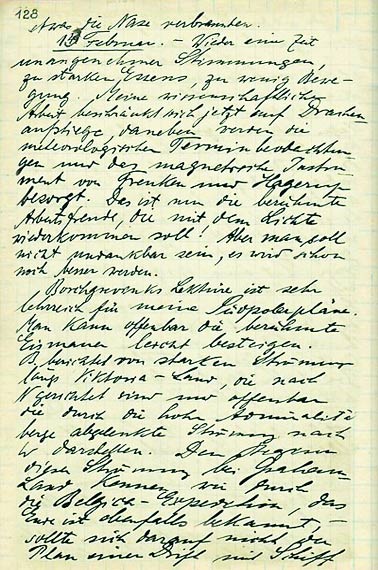 128
etwas die Nase verbrannten.
13 Februar. – Wieder eine Zeit
unangenehmer Stimmungen,
zu starken Essens, zu wenig Bewe-
gung. Meine wissenschaftliche
Arbeit beschränkt sich jetzt auf Drachen-
aufstiege, daneben werden die
meteorologischen Terminbeobachtun-
gen und das magnetische Instru-
ment von Freuken und Hagerup
besorgt. Das ist nun die berühmte
Arbeitsfreude, die mit dem Lichte
wiederkommen soll! Aber man soll
nicht undankbar sein, es wird schon
noch besser werden.
Borchgrevinks Lektüre ist sehr
lehrreich für meine Südpolarpläne.
Man kann offenbar die berühmte
Eismauer leicht besteigen.
B. berichtet von starken Strömung
längs Viktoria-Land, die nach
N gerichtet sind und offenbar
die durch die hohen Admiralitäts
berge abgelenkte Strömung nach
W darstellen. Den
dieser Strömung bei Graham-
Land kennen wir durch
die Belgica-Expedition, das
Ende ist ebenfalls bekannt, –
sollte sich darauf nicht der
Plan einer Drift mit Schiff